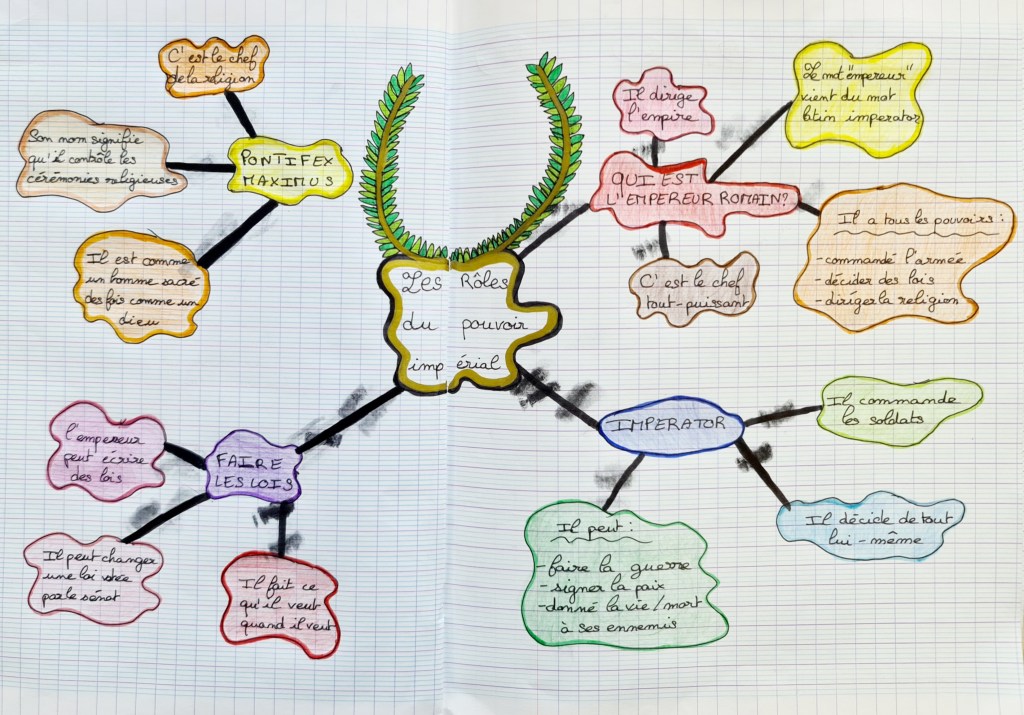 Les Rôles
du pouvoir
impérial
PONTIFEX
MAXIMUS
C'est le chef
de la religion
Son nom signifie
qu'il contrôle les
cérémonies religieuses
Il est comme
un homme sacré
des fois comme un
dieu
QUI EST
L'EMPEREUR ROMAIN?
Il dirige
l'empire
Le mot "empereur"
vient du mot
latin imperator
Il a tous les pouvoirs :
- commandé l'armée
- décider des lois
- diriger la religion
C'est le chef
tout-puissant
IMPERATOR
Il commande
les soldats
Il décide de tout
lui-même
Il peut :
- faire la guerre
- signer la paix
- donné la vie/mort
à ses ennemis
FAIRE
LES LOIS
l'empereur
peut écrire
des lois
Il peut changer
une loi votée
par le sénat
Il fait ce
qu'il veut
quand il veut